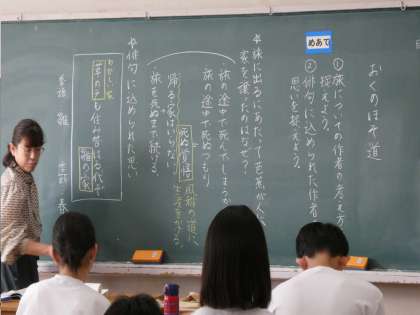 おくのほそ道
めあて
①旅についての作者の考え方を
捉えよう。
②俳句に込められた作者の
思いを捉えよう。
☆旅に出るにあたって芭蕉が
家を譲ったのはなぜ？
旅の途中で死んでしまうか
旅の途中で死ぬつもり。
死ぬ覚悟
風雅の道に、
生涯をかける。
帰る家はいらない
旅を死ぬまで続ける。
☆俳句に込められた思い
わびしい家
草の戸も住み替はる代ぞ
雛の家
季語 雛
春